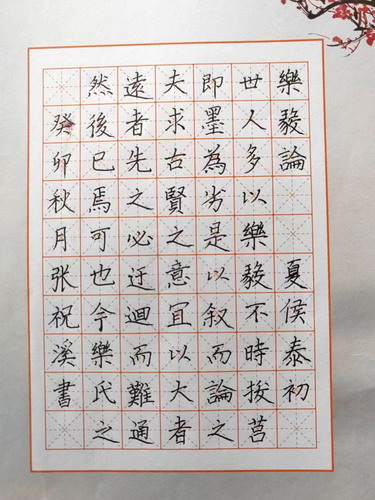 樂毅論 夏侯泰初
世人多以樂毅不時拔莒
即墨為劣是以叙而論之
夫求古賢之意宜以大者
遠者先之必迂迴而難通
然後已焉可也今樂氏之
癸卯秋月张祝溪書